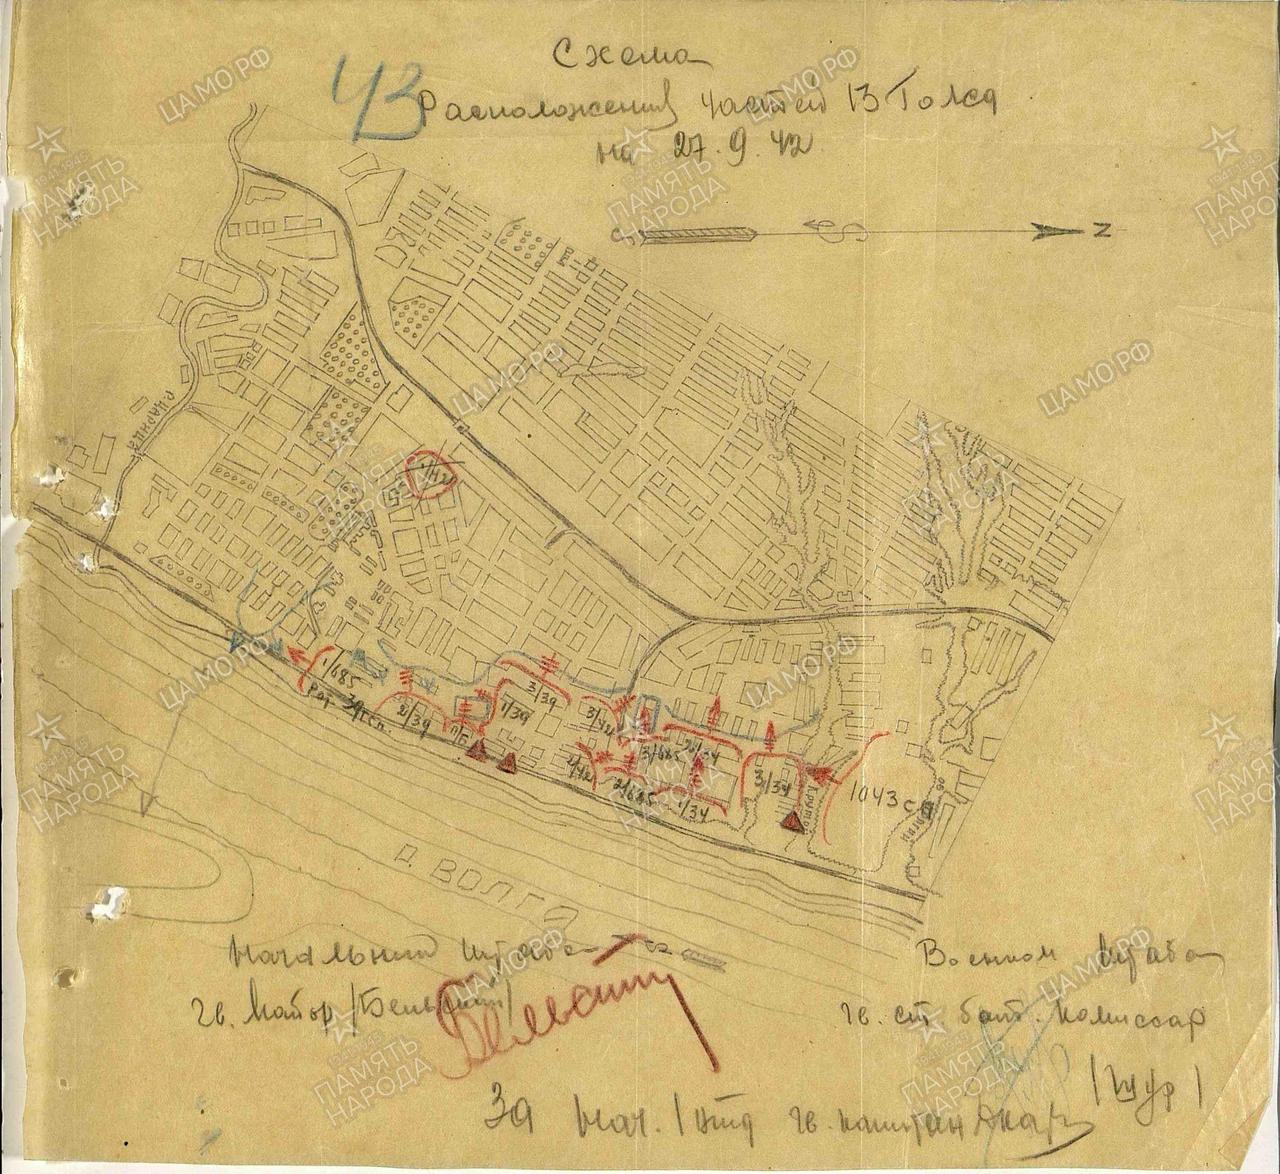 Схема
43
Расположения частей 13 Гв.сд
на 27.9.42
N
р. ЦАРИЦА
1/42
1/685
Рар. 39 гсп.
2/39
1/39
3/39
3/42
2/42
3/685
2/685
2/34
1/34
3/34
1043 сп
Крутой
р. ВОЛГА
Начальник штаба
гв. майор /Бельский/
Бельский
Военком штаба
гв. ст. бат. комиссар
/Шур/
За нач. 1 отд гв. капитан
ЦАМО РФ
ПАМЯТЬ
НАРОДА